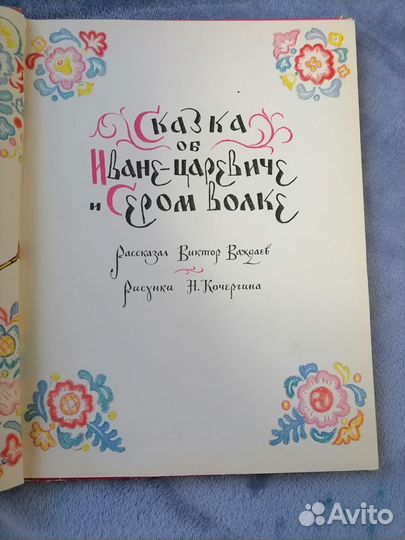 Сказка
об
Иване-царевиче
и Сером волке
Рассказал Виктор Важдаев
Рисунки Н. Кочергина
Avito